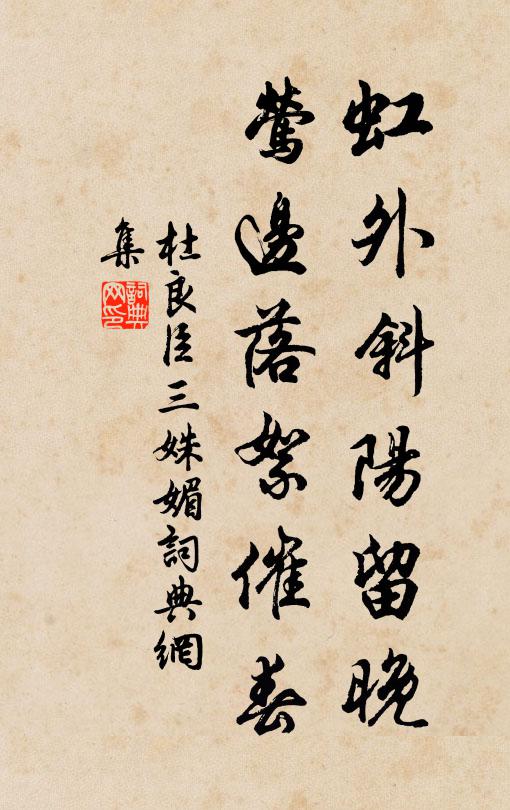 虹外斜陽留晚
鶯邊落絮催春
杜良臣三姝媚詞典網
集
詞典
网印